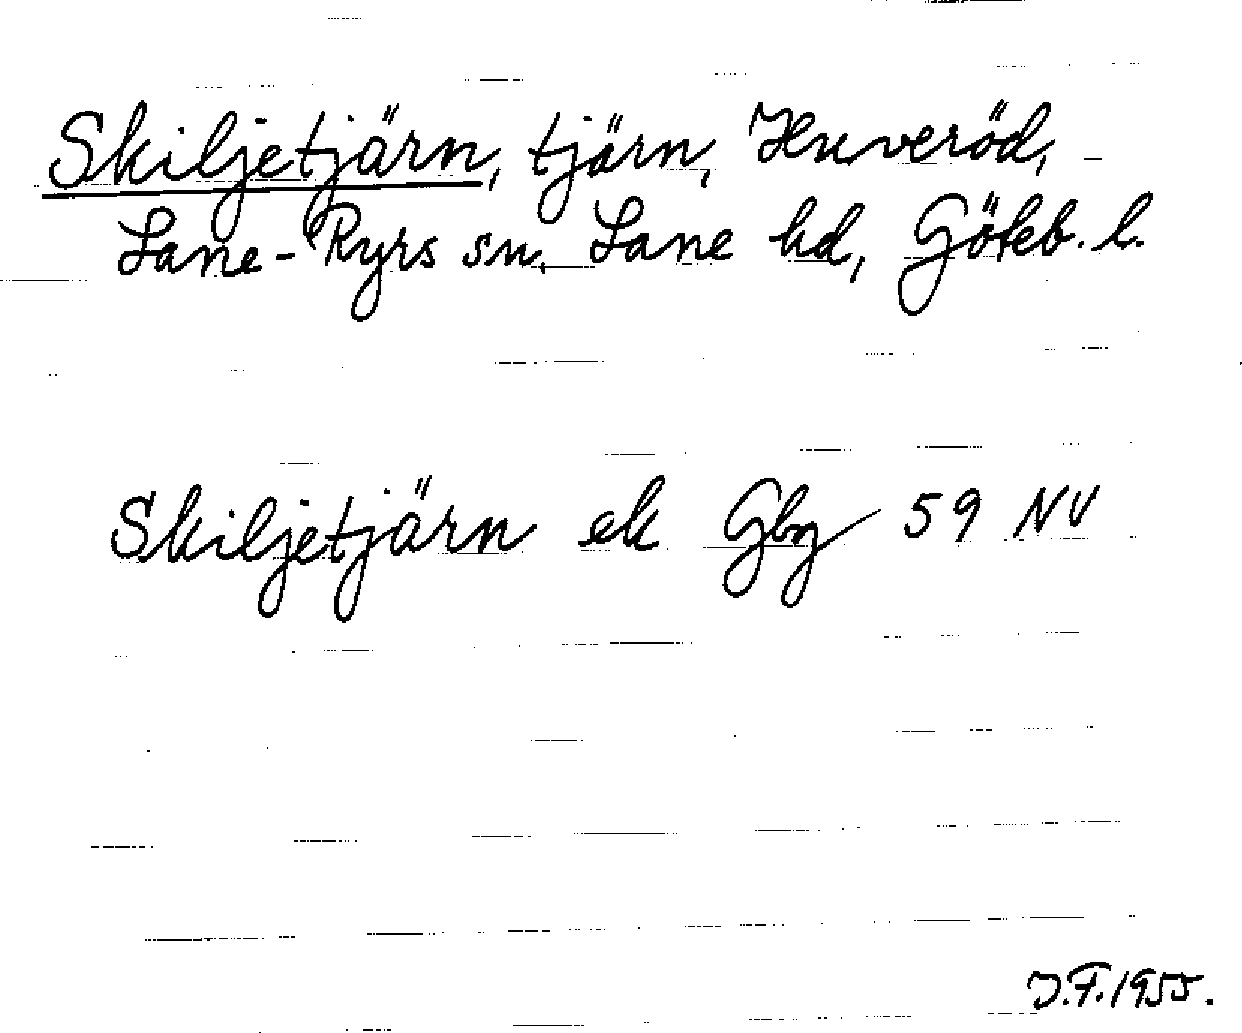 Skiljetjärn, tjärn, Huveröd,
Lane-Ryrs sn, Lane hd, Göteb. l.
Skiljetjärn ek Gbg 59 NV
J.F. 1955.